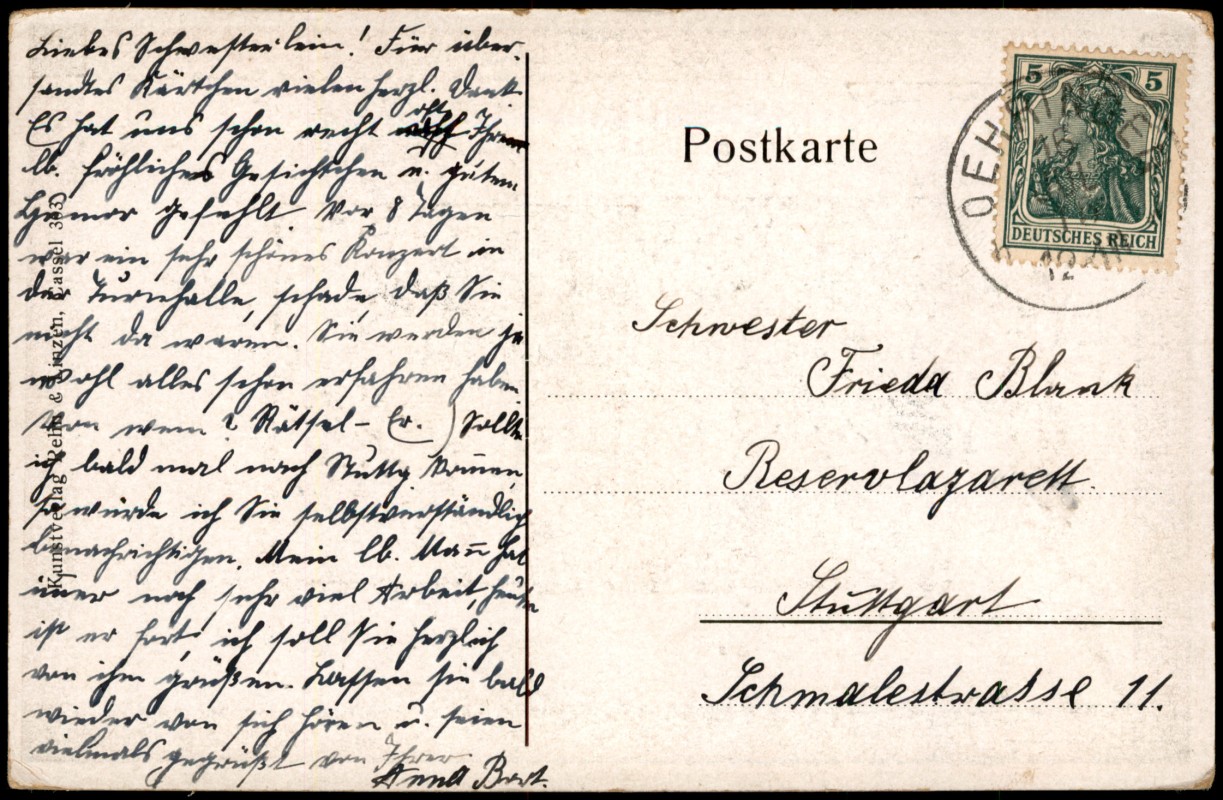 Liebes Schwesterlein! Für über-
sandtes Kärtchen vielen herzl. Dank.
Es hat uns schon recht oft Ihr
lb. fröhliches Gesichtchen u. guten
Humor gefehlt. Vor 8 Tagen
war ein sehr schönes Konzert in
der Turnhalle, schade, daß Sie
nicht da waren. Sie werden ja
wohl alles schon erfahren haben.
Von wem? Rätsel – Er.) Sollte
ich bald mal nach Stuttg. kom̄en,
so würde ich Sie selbstverständlich
benachrichtigen. Mein lb. Man̄ hat
im̄er noch sehr viel Arbeit, heute
ist er fort, ich soll Sie herzlich
von ihm grüßen. Lassen sie bald
wieder von sich hören u. seien
vielmals gegrüßt von Ihrer
Anna Bort.
Kunstverlag & Cassel 333)
Postkarte
5 5
DEUTSCHES REICH
OEHRINGEN
12
Schwester
Frieda Blank
Reservlazarett.
Stuttgart
Schmalestrasse 11.